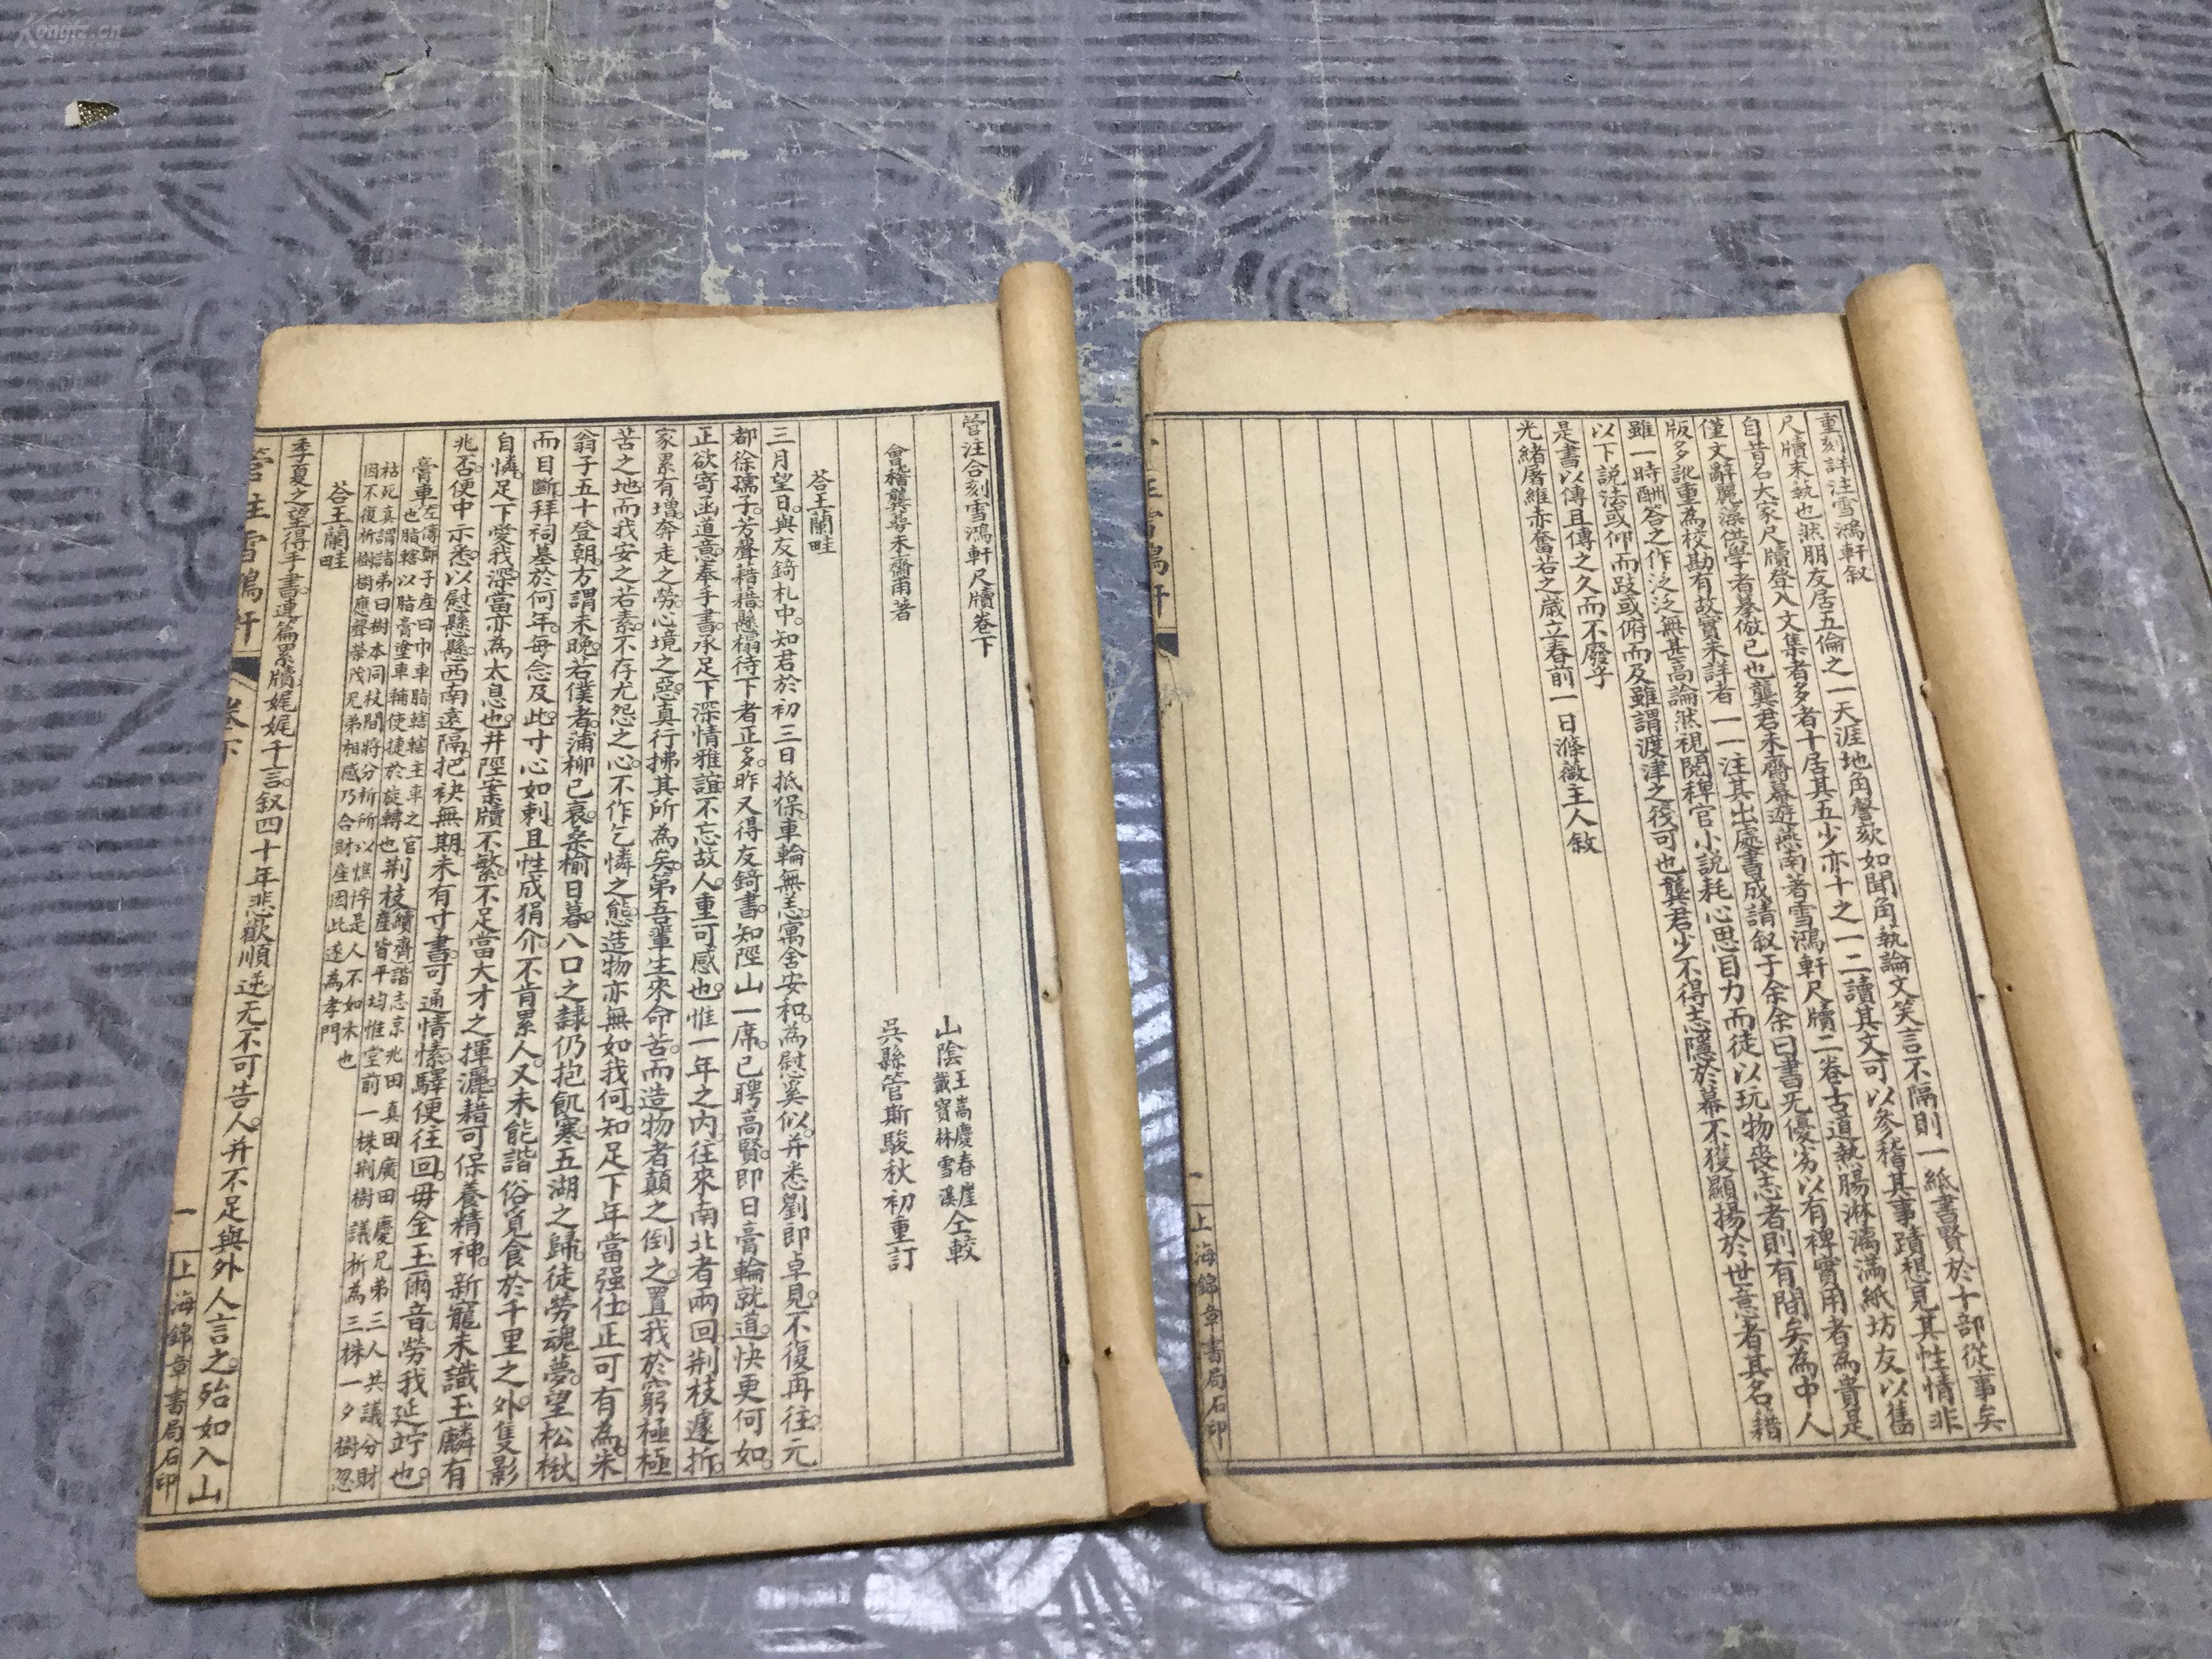 Kongfz.cn
重刻詳注雪鴻軒敘
尺牘末執也然朋友居五倫之一天涯地角謦欬如聞角執論文笑言不隔則一紙書賢於十部從事矣
自昔名大家尺牘登入文集者多者十居其五少亦十之一二讀其文可以參稽其事蹟想見其性情非
僅文辭麗藻供學者摹倣已也龔君未齋幕遊燕南著雪鴻軒尺牘二卷古道熱腸淋漓滿紙坊友以舊
版多訛重為校勘有故實未詳者一一注其出處書成請敘于余余曰書无優劣以有裨實用者為貴是
雖一時酬答之作泛泛無甚高論然視閱稗官小説耗心思目力而徒以玩物喪志者則有間矣為中人
以下説法或仰而跂或俯而及雖謂渡津之筏可也龔君少不得志隱於幕不獲顯揚於世意者其名藉
是書以傳且傳之久而不廢乎
光緒屠維赤奮若之歲立春前一日滌薇主人敘
一
上海錦章書局石印
管注合刻雪鴻軒尺牘卷下
會稽龔萼未齋甫著
山陰王嵩慶春崖戴寶林雪溪仝較
吳縣管斯駿秋初重訂
荅王蘭畦
三月望日與友錡札中知君於初三日抵保車輪無恙寓舍安和為慰奚似并悉劉郎卓見不復再往元
都徐孺子芳聲藉藉懸榻待下者正多昨又得友錡書知陘山一席已聘高賢即日膏輪就道快更何如
正欲寄函道意奉手書承足下深情雅誼不忘故人重可感也惟一年之內往來南北者兩回荆枝遽折
家累有增奔走之勞心境之惡真行拂其所為矣第吾輩生來命苦而造物者顛之倒之置我於窮極極
苦之地而我安之若素不存尤怨之心不作乞憐之態造物亦無如我何知足下年當强仕正可有為朱
翁子五十登朝方謂未晚若僕者蒲柳已衰桑榆日暮八口之隸仍抱飢寒五湖之歸徒勞魂夢望松楸
而目斷拜祠墓於何年每念及此寸心如刺且性成狷介不肯累人又未能諧俗覓食於千里之外隻影
自憐足下愛我深當亦為太息也井陘案牘不繁不足當大才之揮灑藉可保養精神新寵未識玉麟有
兆否便中示悉以慰懸懸西南遠隔把袂無期未有寸書可通情愫驛便往回毋金玉爾音勞我延竚也
膏車左傳鄭子產曰巾車脂轄轄主車之官也脂轄以脂膏塗車輔使捷於旋轉也荆枝續齊諧志京兆田真田廣田慶兄弟三人共議分財產皆平均惟堂前一株荆樹議析為三株一夕樹忽
枯死真謂諸弟曰樹本同枝聞將分析所以憔悴是人不如木也因不復析樹樹應聲榮茂兄弟相感乃合財產因此遂為孝門
荅王蘭畦
季夏之望得手書連篇累牘娓娓千言敘四十年悲歡順逆无不可告人并不足與外人言之殆如入山
管注雪鴻軒
卷下
一
上海錦章書局石印